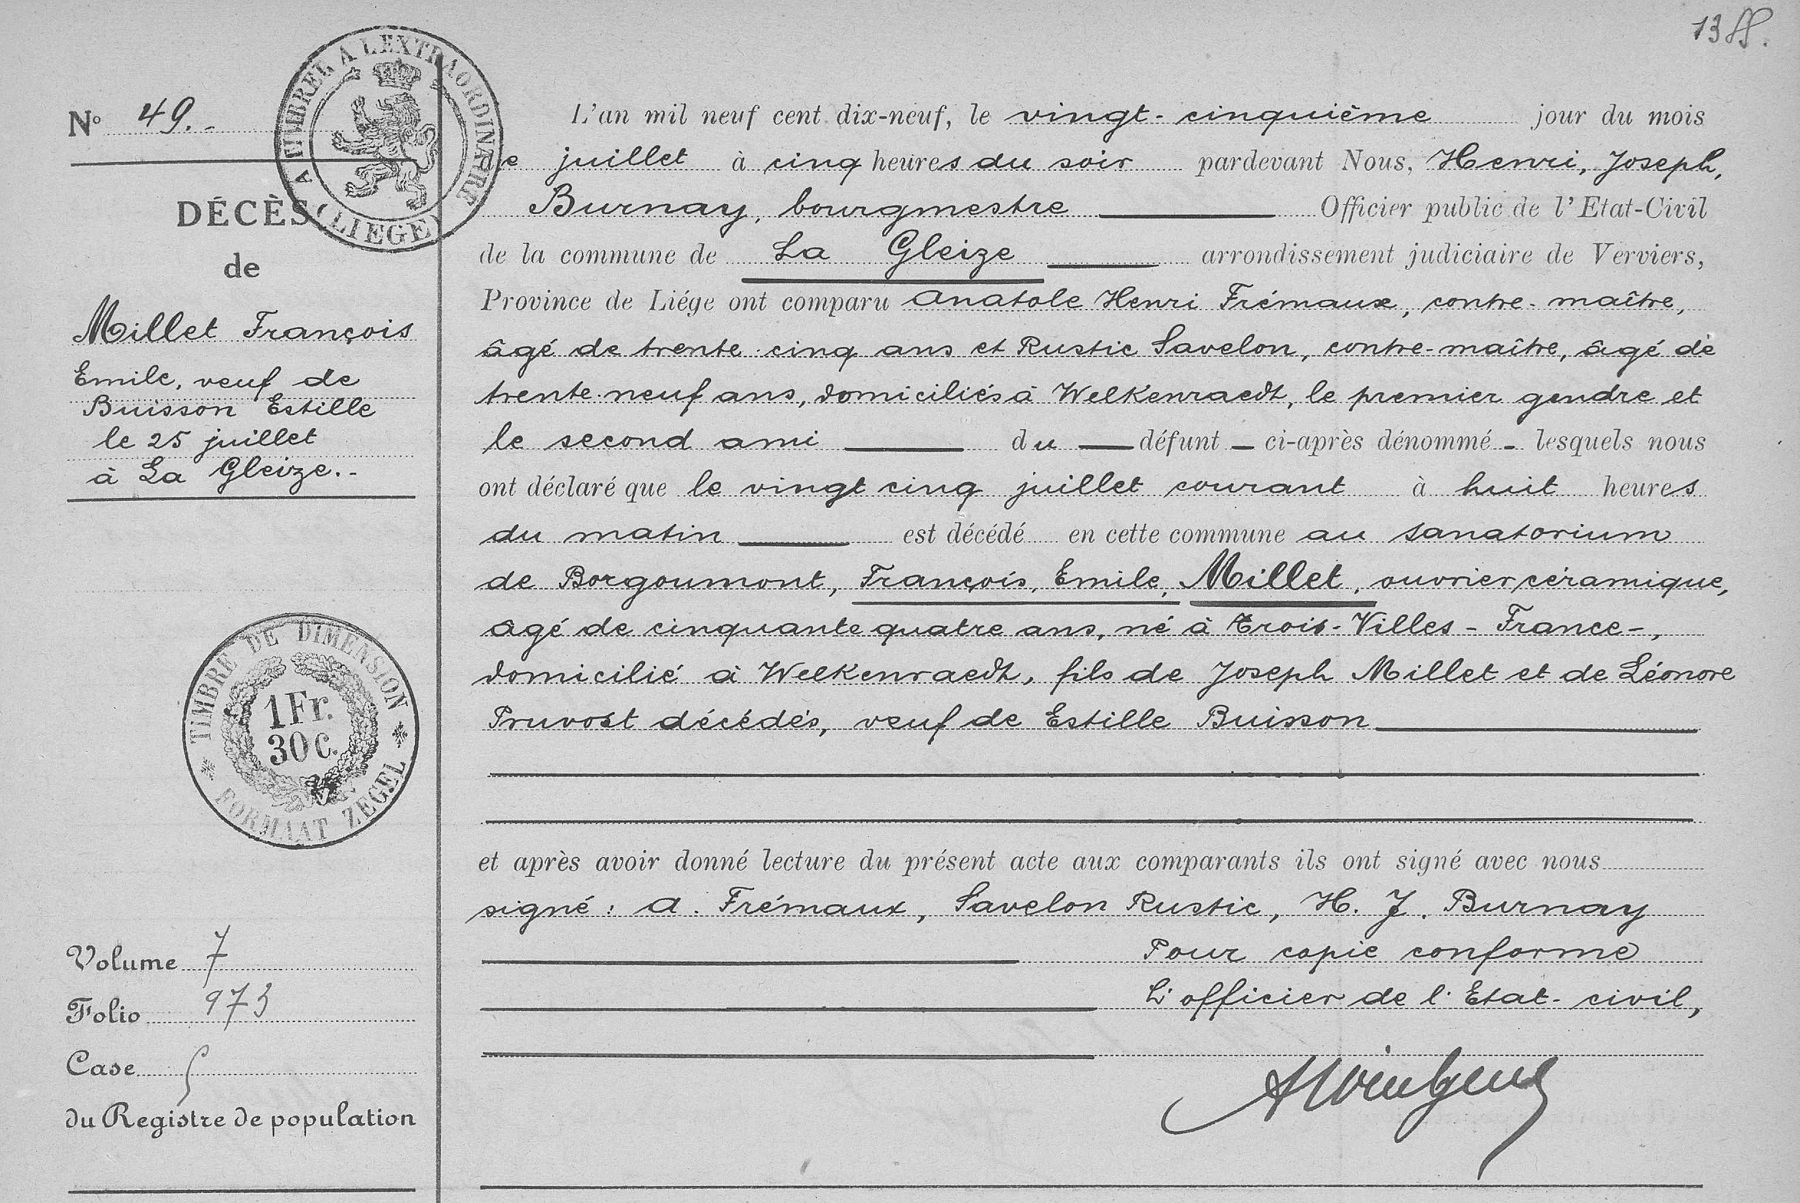 1385.
A TIMBRER A L'EXTRAORDINAIRE
(LIEGE)
N° 49.-
DÉCÈS
de
Millet François
Emile, veuf de
Buisson Estille
le 25 juillet
à La Gleize.-
TIMBRE DE DIMENSION
1 Fr.
30 C.
FORMAAT ZEGEL
Volume 7
Folio 973
Case 5
du Registre de population
L'an mil neuf cent dix-neuf, le vingt-cinquième jour du mois
de juillet à cinq heures du soir pardevant Nous, Henri, Joseph,
Burnay, bourgmestre Officier public de l'Etat-Civil
de la commune de La Gleize arrondissement judiciaire de Verviers,
Province de Liége ont comparu Anatole Henri Frémaux, contre-maître,
âgé de trente-cinq ans et Rustic Savelon, contre-maître, âgé de
trente-neuf ans, domiciliés à Welkenraedt, le premier gendre et
le second ami du défunt - ci-après dénommé - lesquels nous
ont déclaré que le vingt cinq juillet courant à huit heures
du matin est décédé en cette commune au sanatorium
de Borgoumont, François, Emile, Millet, ouvrier céramique,
âgé de cinquante quatre ans, né à Trois-Villes - France -,
domicilié à Welkenraedt, fils de Joseph Millet et de Léonore
Pruvost décédés, veuf de Estille Buisson
et après avoir donné lecture du présent acte aux comparants ils ont signé avec nous
signé : A. Frémaux, Savelon Rustic, H. J. Burnay
Pour copie conforme
L'officier de l'Etat-civil,